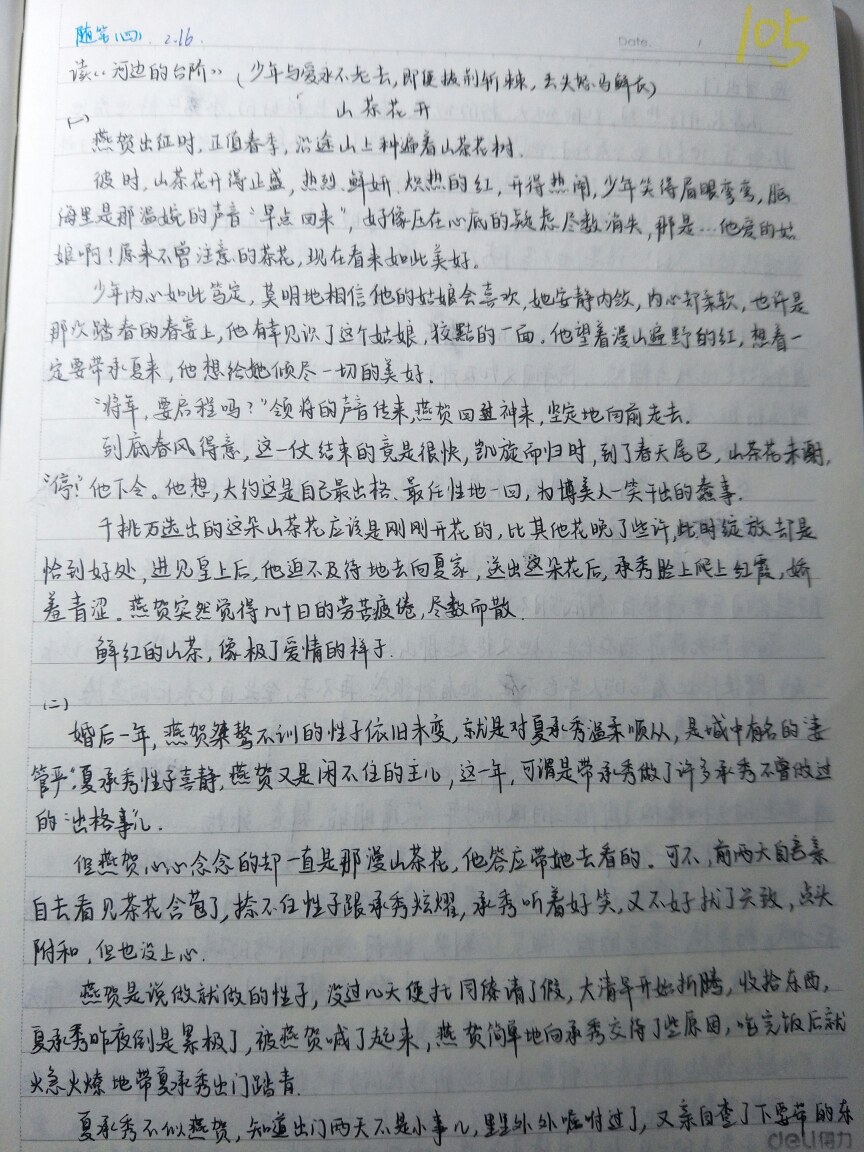 随笔(四) 2.16.
Date.
105
读《河边的台阶》(少年与爱永不老去,即便披荆斩棘,丢失怒马鲜衣)
山茶花开
(一)
燕贺出征时,正值春季,沿途山上种遍着山茶花树.
彼时,山茶花开得正盛,热烈.鲜妍.炽热的红,开得热闹,少年笑得眉眼弯弯,脑
海里是那温婉的声音"早点回来",好像压在心底的疑虑尽数消失,那是…他爱的姑
娘啊!原来不曾注意的茶花,现在看来如此美好。
少年内心如此笃定,莫明地相信他的姑娘会喜欢,她安静内敛,内心却柔软,也许是
那次踏春的春宴上,他有幸见识了这个姑娘,狡黠的一面.他望着漫山遍野的红,想着一
定要带承夏来,他想给她倾尽一切的美好.
"将军,要启程吗?"领将的声音传来,燕贺回神来,坚定地向前走去.
到底春风得意,这一仗结束的竟是很快,凯旋而归时,到了春天尾巴,山茶花未谢,
"停!"他下令。他想,大约这是自己最出格、最任性地一回,为博美人一笑干出的蠢事.
千挑万选出的这朵山茶花应该是刚刚开花的,比其他花晚了些许,此时绽放却是
恰到好处,进见皇上后,他迫不及待地去向夏家,送出这朵花后,承秀脸上爬上红霞,娇
羞青涩。燕贺突然觉得几十日的劳苦疲倦,尽数而散.
鲜红的山茶,像极了爱情的样子.
(二)
婚后一年,燕贺桀骜不训的性子依旧未变,就是对夏承秀温柔顺从,是城中有名的"妻
管严".夏承秀性子喜静,燕贺又是闲不住的主儿,这一年,可谓是带承秀做了许多承秀不曾做过
的"出格事"儿.
但燕贺心心念念的却一直是那漫山茶花,他答应带她去看的.可不,前两天自己亲
自去看见茶花含苞了,捺不住性子跟承秀炫耀,承秀听着好笑,又不好扰了兴致,点头
附和,但也没上心.
燕贺是说做就做的性子,没过几天便托同僚请了假,大清早开始折腾,收拾东西,
夏承秀昨夜倒是累极了,被燕贺喊了起来,燕贺简单地向承秀交待了些原因,吃完饭后就
火急火燎地带夏承秀出门踏青.
夏承秀不似燕贺,知道出门两天不是小事儿,里里外外嘱咐过了,又亲自查了下要带的东
deli得力